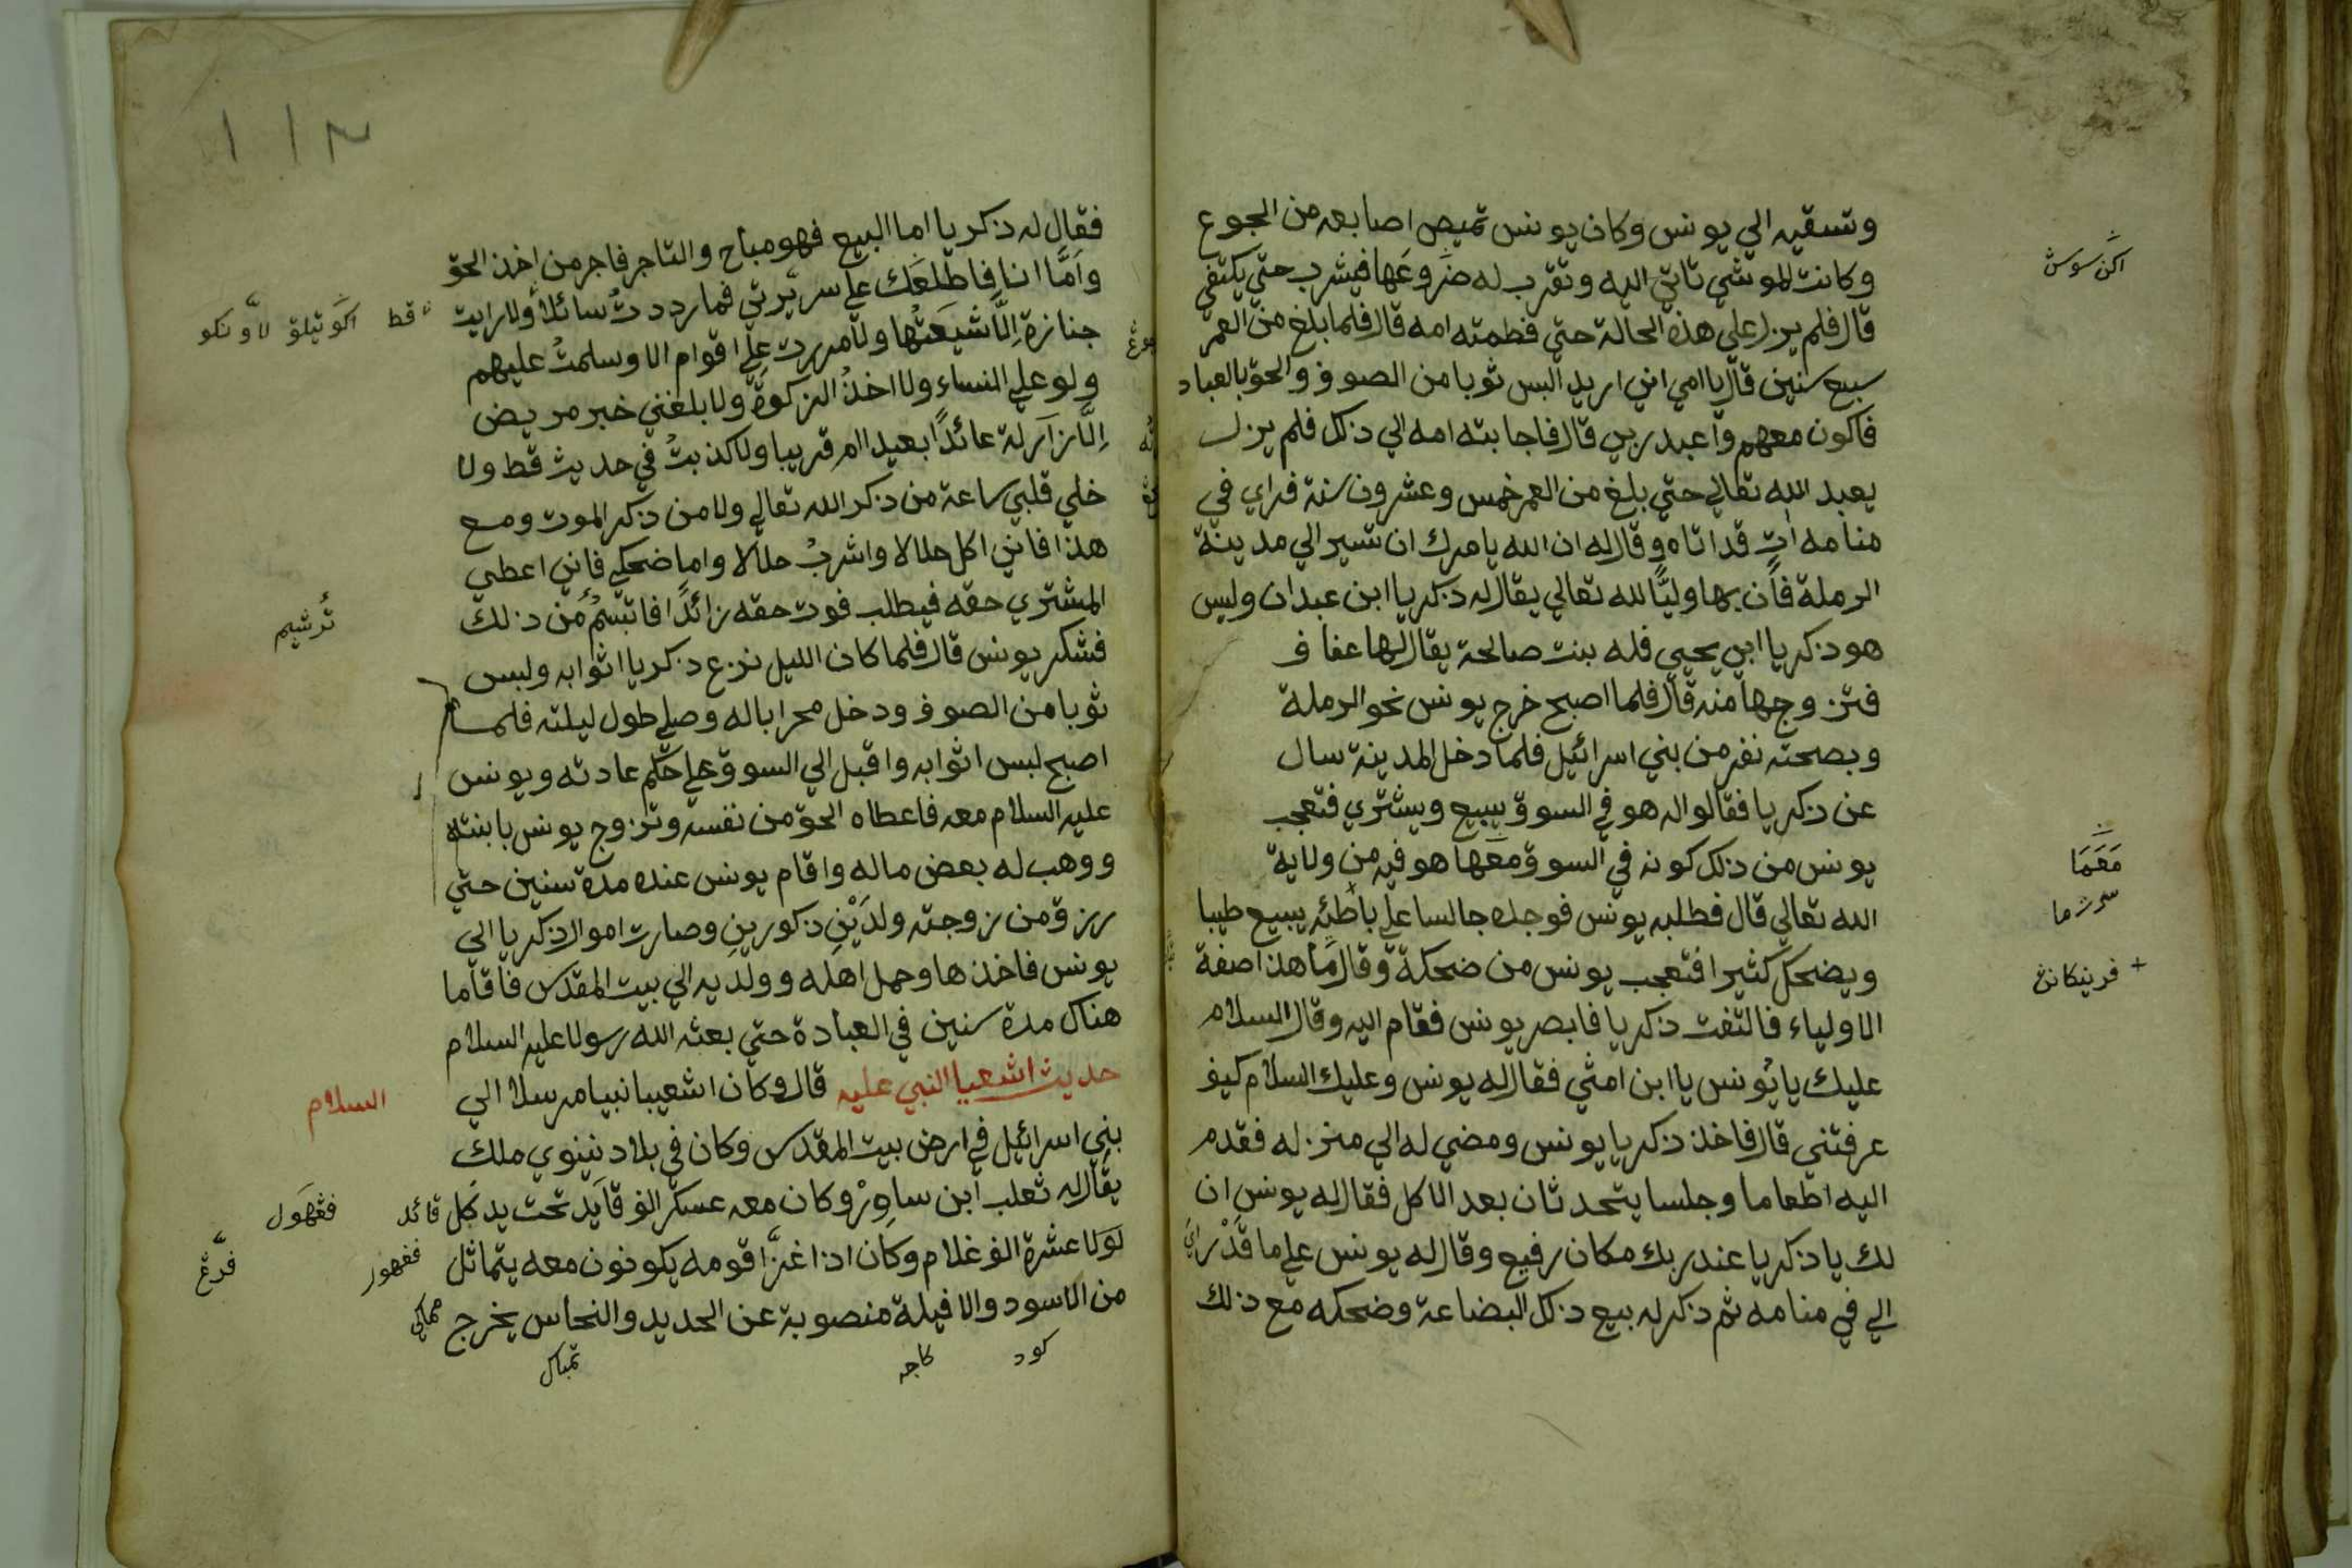 وتسقيه الي يونس وكان يونس تميص اصابعه من الجوع
وكانت الموشي تاتي اليه وتقرب له ضروعها فيشرب حتي يكتفي
قال فلم يزل علي هذه الحالة حتي فطمته امه قال فلما بلغ من العمر
سبع سنين قال يا امي اني اريد البس ثوبا من الصوف والحق بالعباد
فاكون معهم واعبد ربي قال فاجابته امه الي ذلك فلم يزل
يعبد الله تعالي حتي بلغ من العمر خمس وعشرون سنة فراي في
منامه اتٍ قد اتاه وقال له ان الله يامرك ان تسير الي مدينة
الرملة فان بها وليًّا لله تعالي يقال له ذكريا ابن عبدان وليس
هو ذكريا ابن يحيي فله بنت صالحة يقال لها عفاف
فتزوجها منه قال فلما اصبح خرج يونس نحو الرملة
وبصحته نفر من بني اسرائيل فلما دخل المدينة سال
عن ذكريا فقالوا له هو في السوق يبيع ويشتري فتعجب
يونس من ذلك كونه في السوق معها هو فيه من ولاية
الله تعالي قال فطلبه يونس فوجده جالسا علي باطئه يبيع طيبا
ويضحك كثيرا فتعجب يونس من ضحكة وقال ما هذا صفة
الاولياء فالتفت ذكريا فابصر يونس فقام اليه وقال السلام
عليك يا يُونس يا ابن امثي فقال له يونس وعليك السلام كيف
عرفتني قال فاخذ ذكريا يونس ومضي له الي منزله فقدم
اليه اطعاما وجلسا يتحدثان بعد الاكل فقال له يونس ان
لك يا ذكريا عند ربك مكان رفيع وقال له يونس علي ما قَدْ راي
الي في منامه ثم ذكر له بيع ذلك البضاعة وضحكه مع ذلك
اكن سوسن
مَعَمَا
+ فرينكانڠ
فقال له ذكريا اما البيع فهو مباح والتاجر فاجر من اخذ الحق
وامَّا انا فاطلعَك علي سريرتي فما رددتُ سائلا ولا رايت
جنازة اِلَّا شيعَتُها ولا مررت علي اقوام الا وسلمتُ عليهم
ولو علي النساء ولا اخذُ الزكوةَ ولا بلغني خبر مريض
اِلَّا زاَرلة عائدًا بعيدا ام قريبا ولا كذبتُ في حديث قط ولا
خلي قلبي ساعة من ذكر الله تعالي ولا من ذكر الموت ومع
هذا فاني اكل حلالا واشربُ حلالا واما ضحكي فاني اعطي
المشتري حقه فيطلب فوت حقه زائدًا فاتبسّمُ من ذلك
فشكر يونس قال فلما كان الليل نزع ذكريا اثوابه ولبس
ثوبا من الصوف ودخل محرابا له وصلي طول ليلته فلما
اصبح لبس اثوابه واقبل الي السوق علي حكم عادته ويونس
عليه السلام معه فاعطاه الحق من نفسه وتزوج يونس بابنته
ووهب له بعض ماله واقام يونس عنده مدة سنين حتي
رزق من زوجته ولدَيْنِ ذكورينِ وصارت اموال ذكريا الي
يونس فاخذها وحمل اهله وولديه الي بيت المقدس فاقاما
هناك مدة سنين في العبادة حتي بعثه الله رسولا عليه السلام
حديث اشعيا النبي عليه قال وكان اشعيبا نبيا مرسلا الي
السلام
بني اسرائيل في ارض بيت المقدس وكان في بلاد نينوي ملك
يقال له ثعلب ابن ساوِرْ وكان معه عسكر الف قايَد تحت يد كل قائد
لَوَلا عشرة الف غلام وكان اذا غزا قومه يكونون معه يتماثل
من الاسود والافيلة منصوبة عن الحديد والنحاس يخرج
قط
تُرشيم
فڠهول
ففهور
كود
كاجه
تمباك